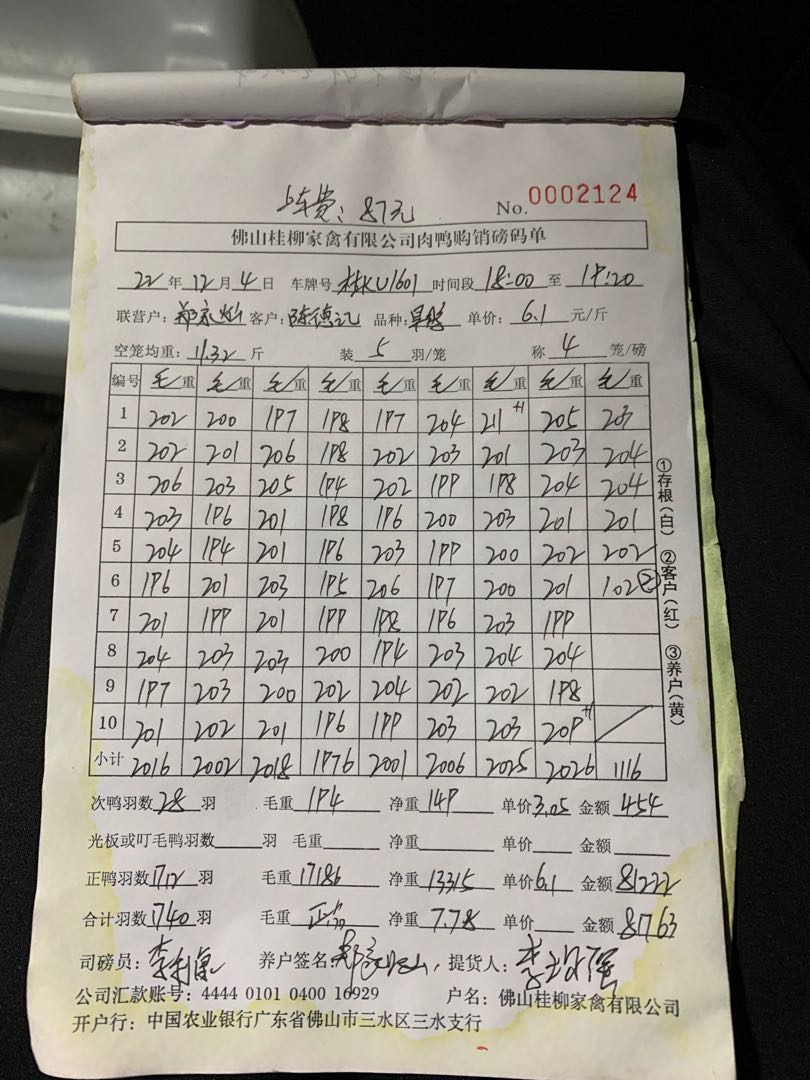 上车费：87元 No. 0002124
佛山桂柳家禽有限公司肉鸭购销磅码单
22年12月4日 车牌号桂KU1601 时间段18:00至19:20
联营户： 客户：陈德记 品种： 单价：6.1元/斤
空笼均重：11.32斤 装5羽/笼 称4笼/磅
编号 毛重 毛重 毛重 毛重 毛重 毛重 毛重 毛重 毛重
1 202 200 197 198 197 204 211+1 205 203
2 202 201 206 198 202 203 201 203 204
3 206 203 205 194 202 199 198 204 204
4 203 196 201 198 196 200 203 201 201
5 204 194 201 196 203 199 200 202 202
6 196 201 203 195 206 197 200 201 102②
7 201 199 201 199 198 196 203 199
8 204 203 203 200 194 203 204 204
9 197 203 200 202 204 202 202 198
10 201 202 201 196 199 203 203 209+1
小计 2016 2002 2018 1976 2001 2006 2025 2026 1116
次鸭羽数28羽 毛重194 净重149 单价3.05 金额454
光板或叮毛鸭羽数 羽 毛重 净重 单价 金额
正鸭羽数1712羽 毛重17186 净重13315 单价6.1 金额81222
合计羽数1740羽 毛重 净重7.78 单价 金额81763
司磅员： 养户签名： 提货人：
公司汇款账号：4444 0101 0400 16929 户名：佛山桂柳家禽有限公司
开户行：中国农业银行广东省佛山市三水区三水支行
①存根（白） ②客户（红） ③养户（黄）